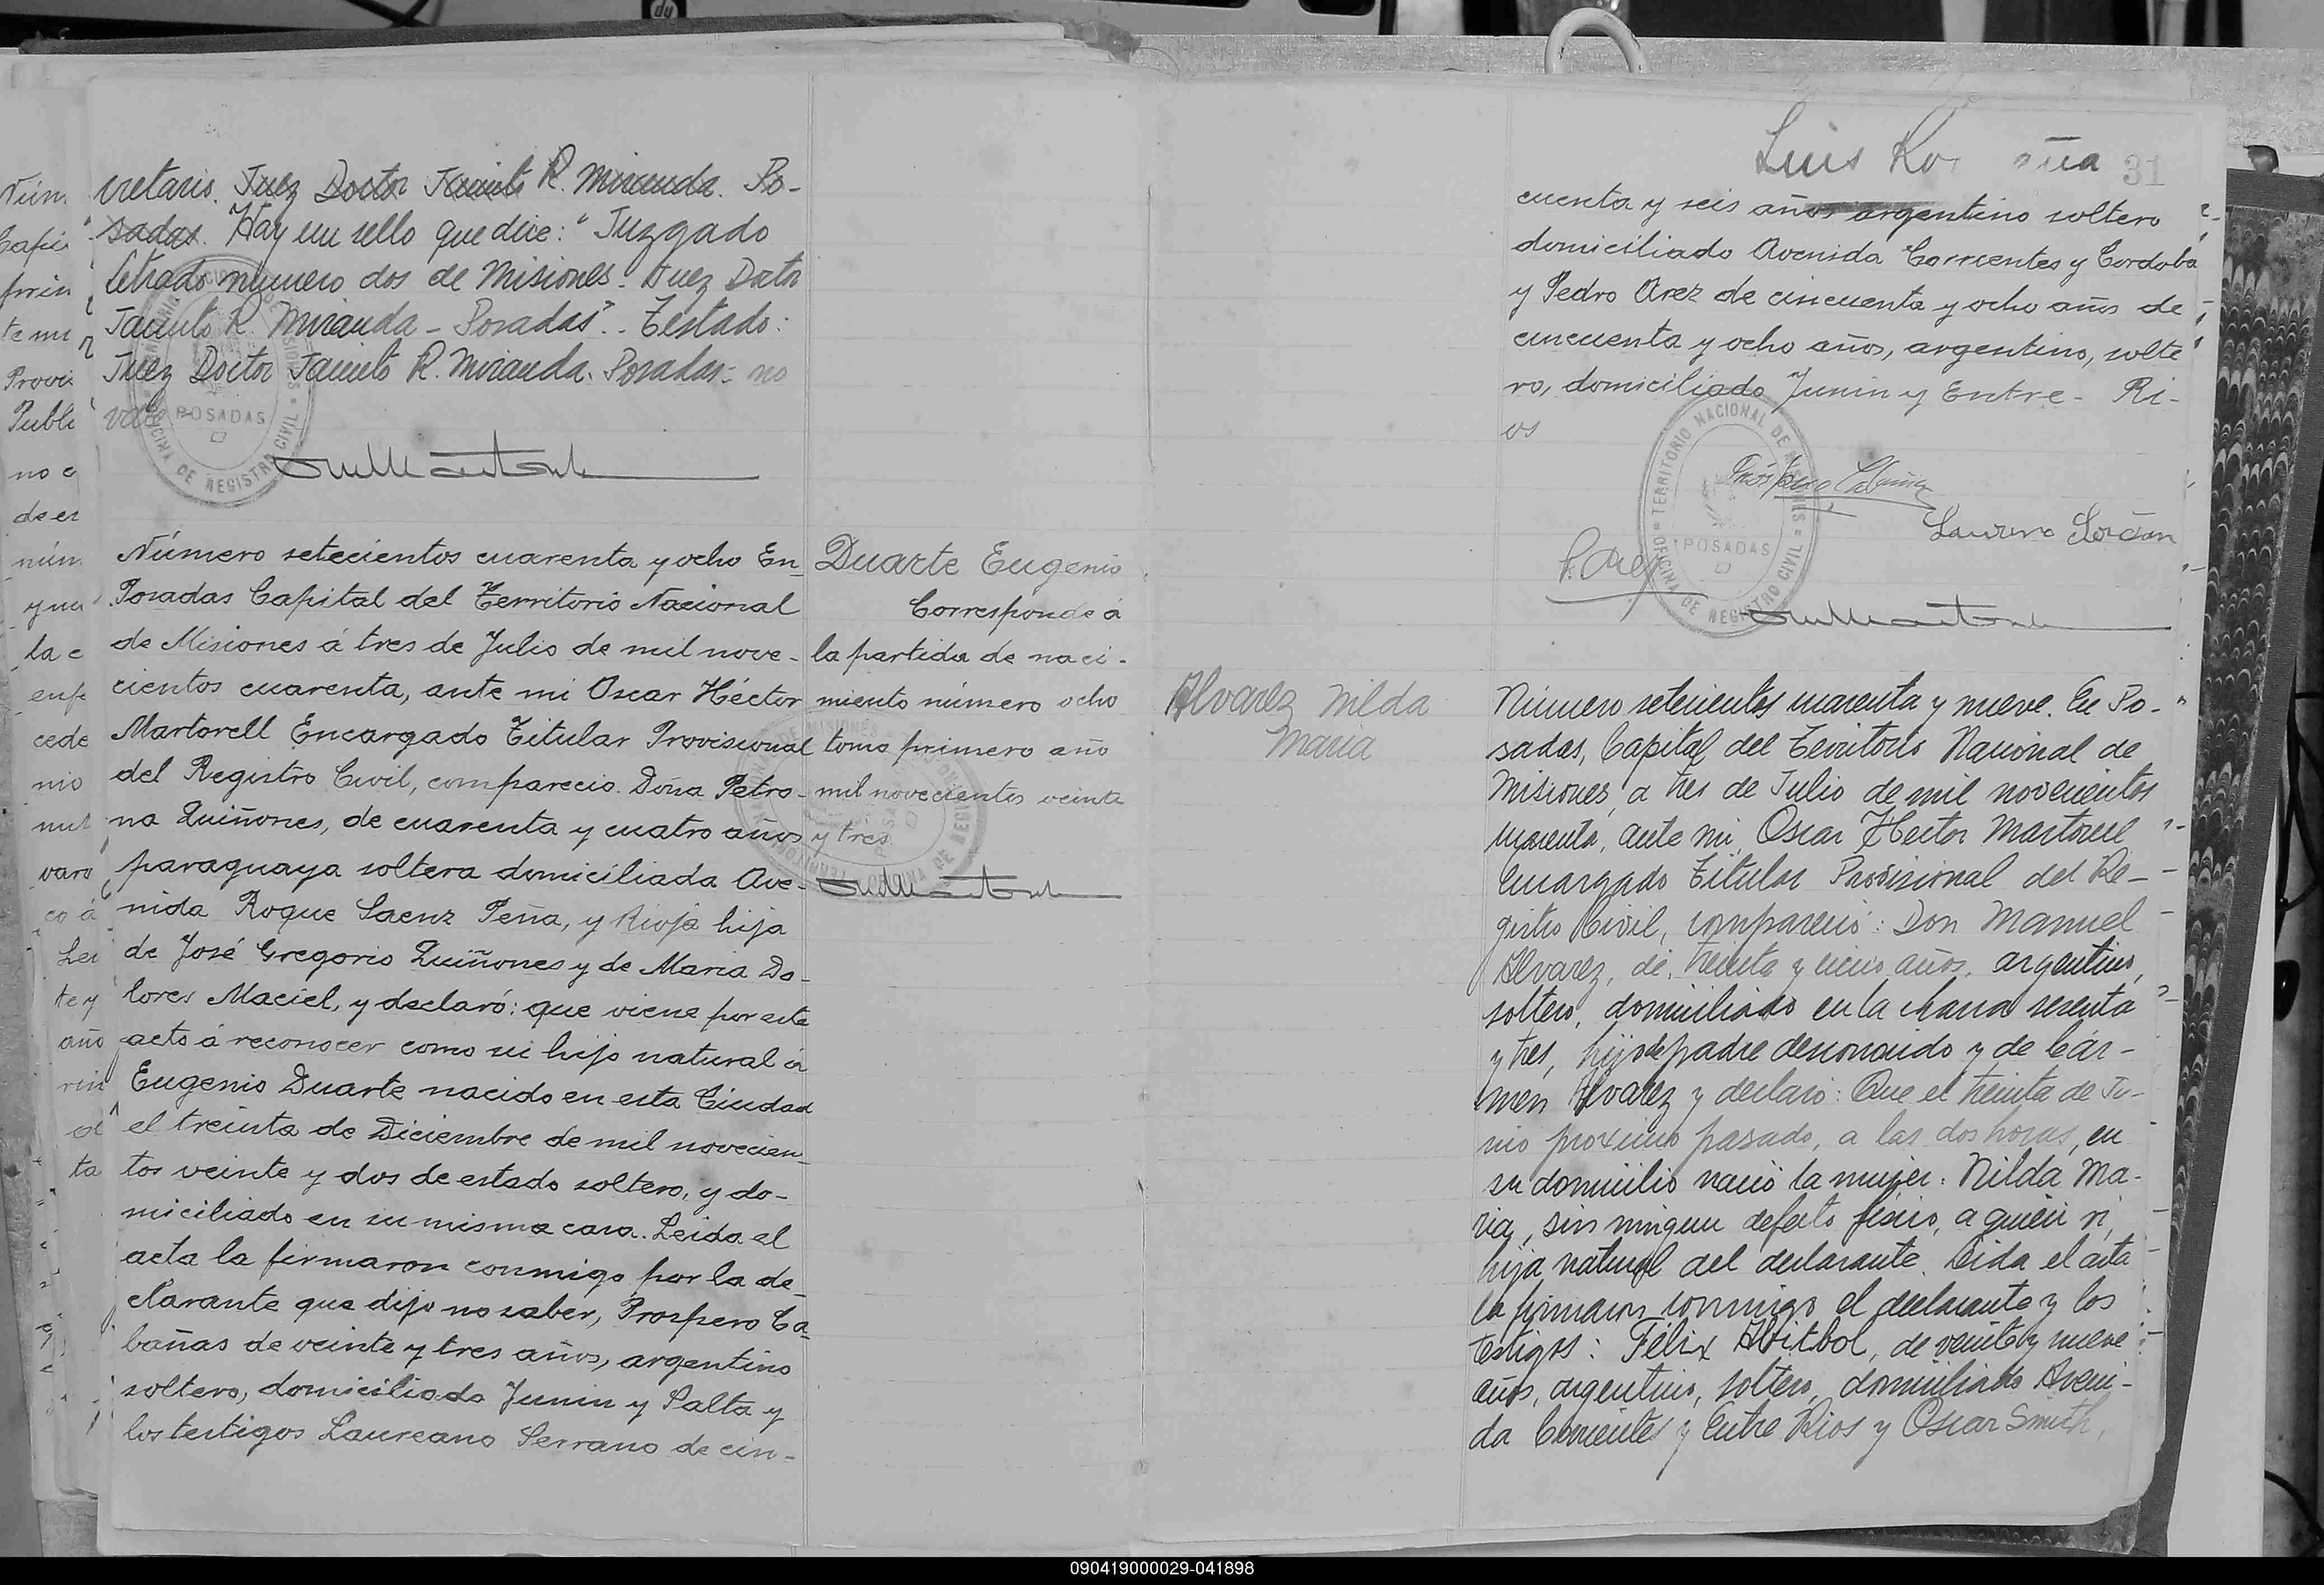 cretario. Juez Doctor Jacinto R. Miranda. Po-
sadas. Hay un sello que dice: "Juzgado
Letrado número dos de Misiones. Juez Doctor
Jacinto R. Miranda - Posadas".. Testado:
Juez Doctor Jacinto R. Miranda. Posadas: no
vale
TERRITORIO NACIONAL DE MISIONES
POSADAS
OFICINA DE REGISTRO CIVIL
Número setecientos cuarenta y ocho En
Posadas Capital del Territorio Nacional
de Misiones á tres de Julio de mil nove-
cientos cuarenta, ante mi Oscar Héctor
Martorell Encargado Titular Provisional
del Registro Civil, comparecio. Doña Petro-
na Quiñones, de cuarenta y cuatro años
paraguaya soltera domiciliada Ave-
nida Roque Saenz Peña, y Rioja hija
de José Gregorio Quiñones y de Maria Do-
lores Maciel, y declaró: que viene por este
acto á reconocer como su hijo natural á
Eugenio Duarte nacido en esta Ciudad
el treinta de Diciembre de mil novecien-
tos veinte y dos de estado soltero, y do-
miciliado en su misma casa. Leida el
acta la firmaron conmigo por la de-
clarante que dijo no saber, Prospero Ca-
bañas de veinte y tres años, argentino
soltero, domiciliado Junin y Salta y
los testigos Laureano Serrano de cin-
Duarte Eugenio
Corresponde á
la partida de naci-
miento número ocho
tomo primero año
mil novecientos veinte
y tres
Luis
31
cuenta y seis años argentino soltero
domiciliado Avenida Corrientes y Cordoba
y Pedro Arez de cincuenta y ocho años de
cincuenta y ocho años, argentino, solte
ro, domiciliado Junin y Entre- Ri-
os
TERRITORIO NACIONAL DE MISIONES
POSADAS
OFICINA DE REGISTRO CIVIL
Alvarez Nilda
Maria
Número setecientos cuarenta y nueve. En Po-
sadas, Capital del Territorio Nacional de
Misiones, a tres de Julio de mil novecientos
cuarenta, ante mi, Oscar Hector Martorell
Encargado Titular Provisional del Re-
gistro Civil, compareció: Don Manuel
Alvarez, de, treinta y cinco años, argentino,
soltero, domiciliado en la chacra sesenta
y tres, hijo de padre desconocido y de Cár-
men Alvarez y declaró: Que el treinta de Ju-
nio proximo pasado, a las dos horas, en
su domicilio nació la mujer: Nilda Ma-
ria, sin ningun defecto fisico, a quien vi,
hija natural del declarante. Leida el acta
la firmaron conmigo el declarante y los
testigos: Félix Abitbol, de veinte y nueve
años, argentino, soltero, domiciliado Aveni-
da Corrientes y Entre Rios y Oscar Smith,
090419000029-041898